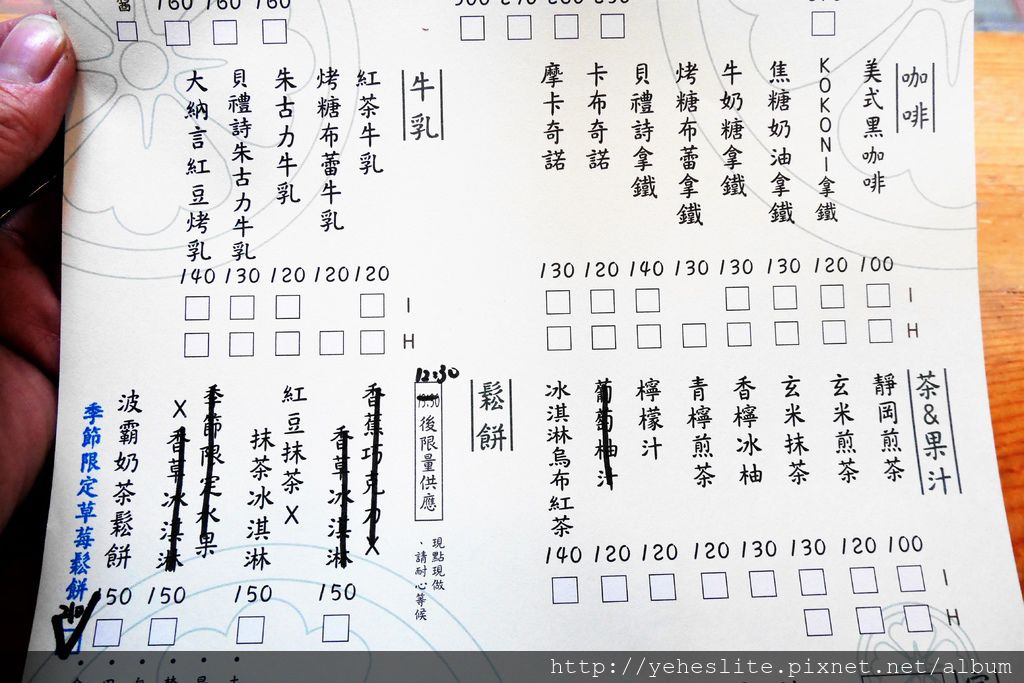 160 160 160
咖啡
美式黑咖啡
KOKONI拿鐵
焦糖奶油拿鐵
牛奶糖拿鐵
烤糖布蕾拿鐵
貝禮詩拿鐵
卡布奇諾
摩卡奇諾
130 120 140 130 130 130 120 100
I
H
牛乳
紅茶牛乳
烤糖布蕾牛乳
朱古力牛乳
貝禮詩朱古力牛乳
大納言紅豆烤乳
140 130 120 120 120
I
H
茶&果汁
靜岡煎茶
玄米煎茶
玄米抹茶
香檸冰柚
青檸煎茶
檸檬汁
葡萄柚汁
冰淇淋烏布紅茶
140 120 120 120 130 130 120 100
I
H
鬆餅
12:30
後限量供應
現點現做
、請耐心等候
香蕉巧克力X
香草冰淇淋
紅豆抹茶X
抹茶冰淇淋
季節限定水果
X香草冰淇淋
波霸奶茶鬆餅
季節限定草莓鬆餅
150 150 150 150
210
http://yeheslite.pixnet.net/album